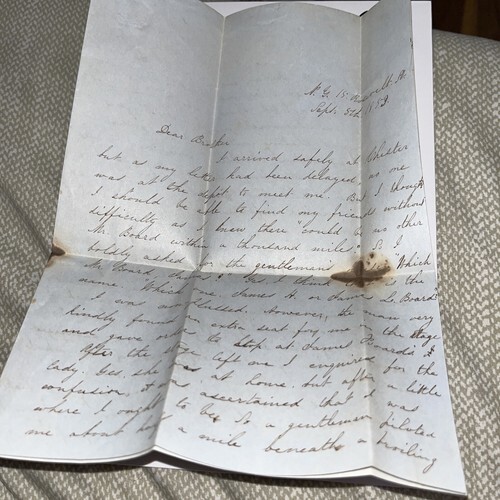 N. Y. 15
Sept. 5th 1859.
Dear Brother
I arrived safely at Chester
but as my letter had been delayed, no one
was at the depot to meet me. But I thought
I should be able to find my friends without
difficulty as I knew there "could be no other
Mr. Board within a thousand miles" So I
boldly asked for the gentleman's Which
Mr. Board I the
name. Which one, James H. or James L. Board?
I was embarrassed. However, the man very
kindly found an extra seat for me in the stage
and gave orders to stop at James Board's &
After the stage left me I enquired for the
lady. Yes she was at home, but after a little
confusion, it was ascertained that I was
where I ought to be. So a gentleman
me about half a mile beneath a broiling